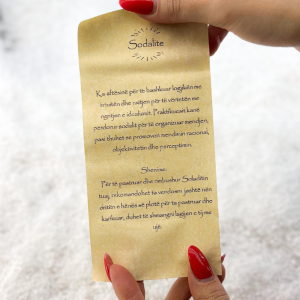 Sodalite
Ka aftësinë për të bashkuar logjikën me
intuitën dhe nxitjen për të vërtetën me
ngritjen e idealizmit. Praktikuesit kanë
përdorur sodalit për të organizuar mendjen,
pasi thuhet se promovon mendimin racional,
objektivitetin dhe perceptimin.
Shenime:
Për të pastruar dhe rimbushur Sodalitin
tuaj, rekomandohet ta vendosni jashtë nën
dritën e hënës së plotë për ta pastruar dhe
karikuar, duhet të shmangni lagjien e tij me
ujë.